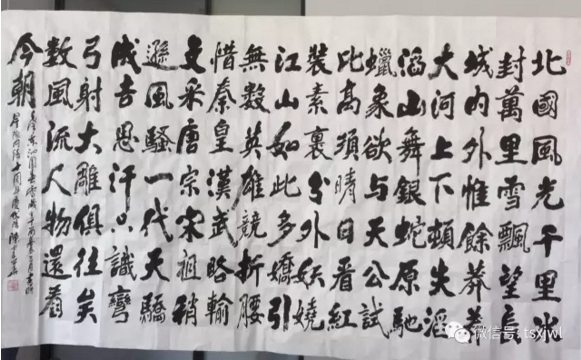 北國風光千里冰
封萬里雪飄望長
城内外惟餘莽莽
大河上下頓失滔
滔山舞銀蛇原馳
蠟象欲与天公試
比高須晴日看紅
裝素裹分外妖嬈
江山如此多嬌引
無數英雄競折腰
惜秦皇漢武略輸
文采唐宗宋祖稍
遜風騷一代天驕
成吉思汗只識彎
弓射大雕俱往矣
數風流人物還看
今朝
微信号: tsxjwl